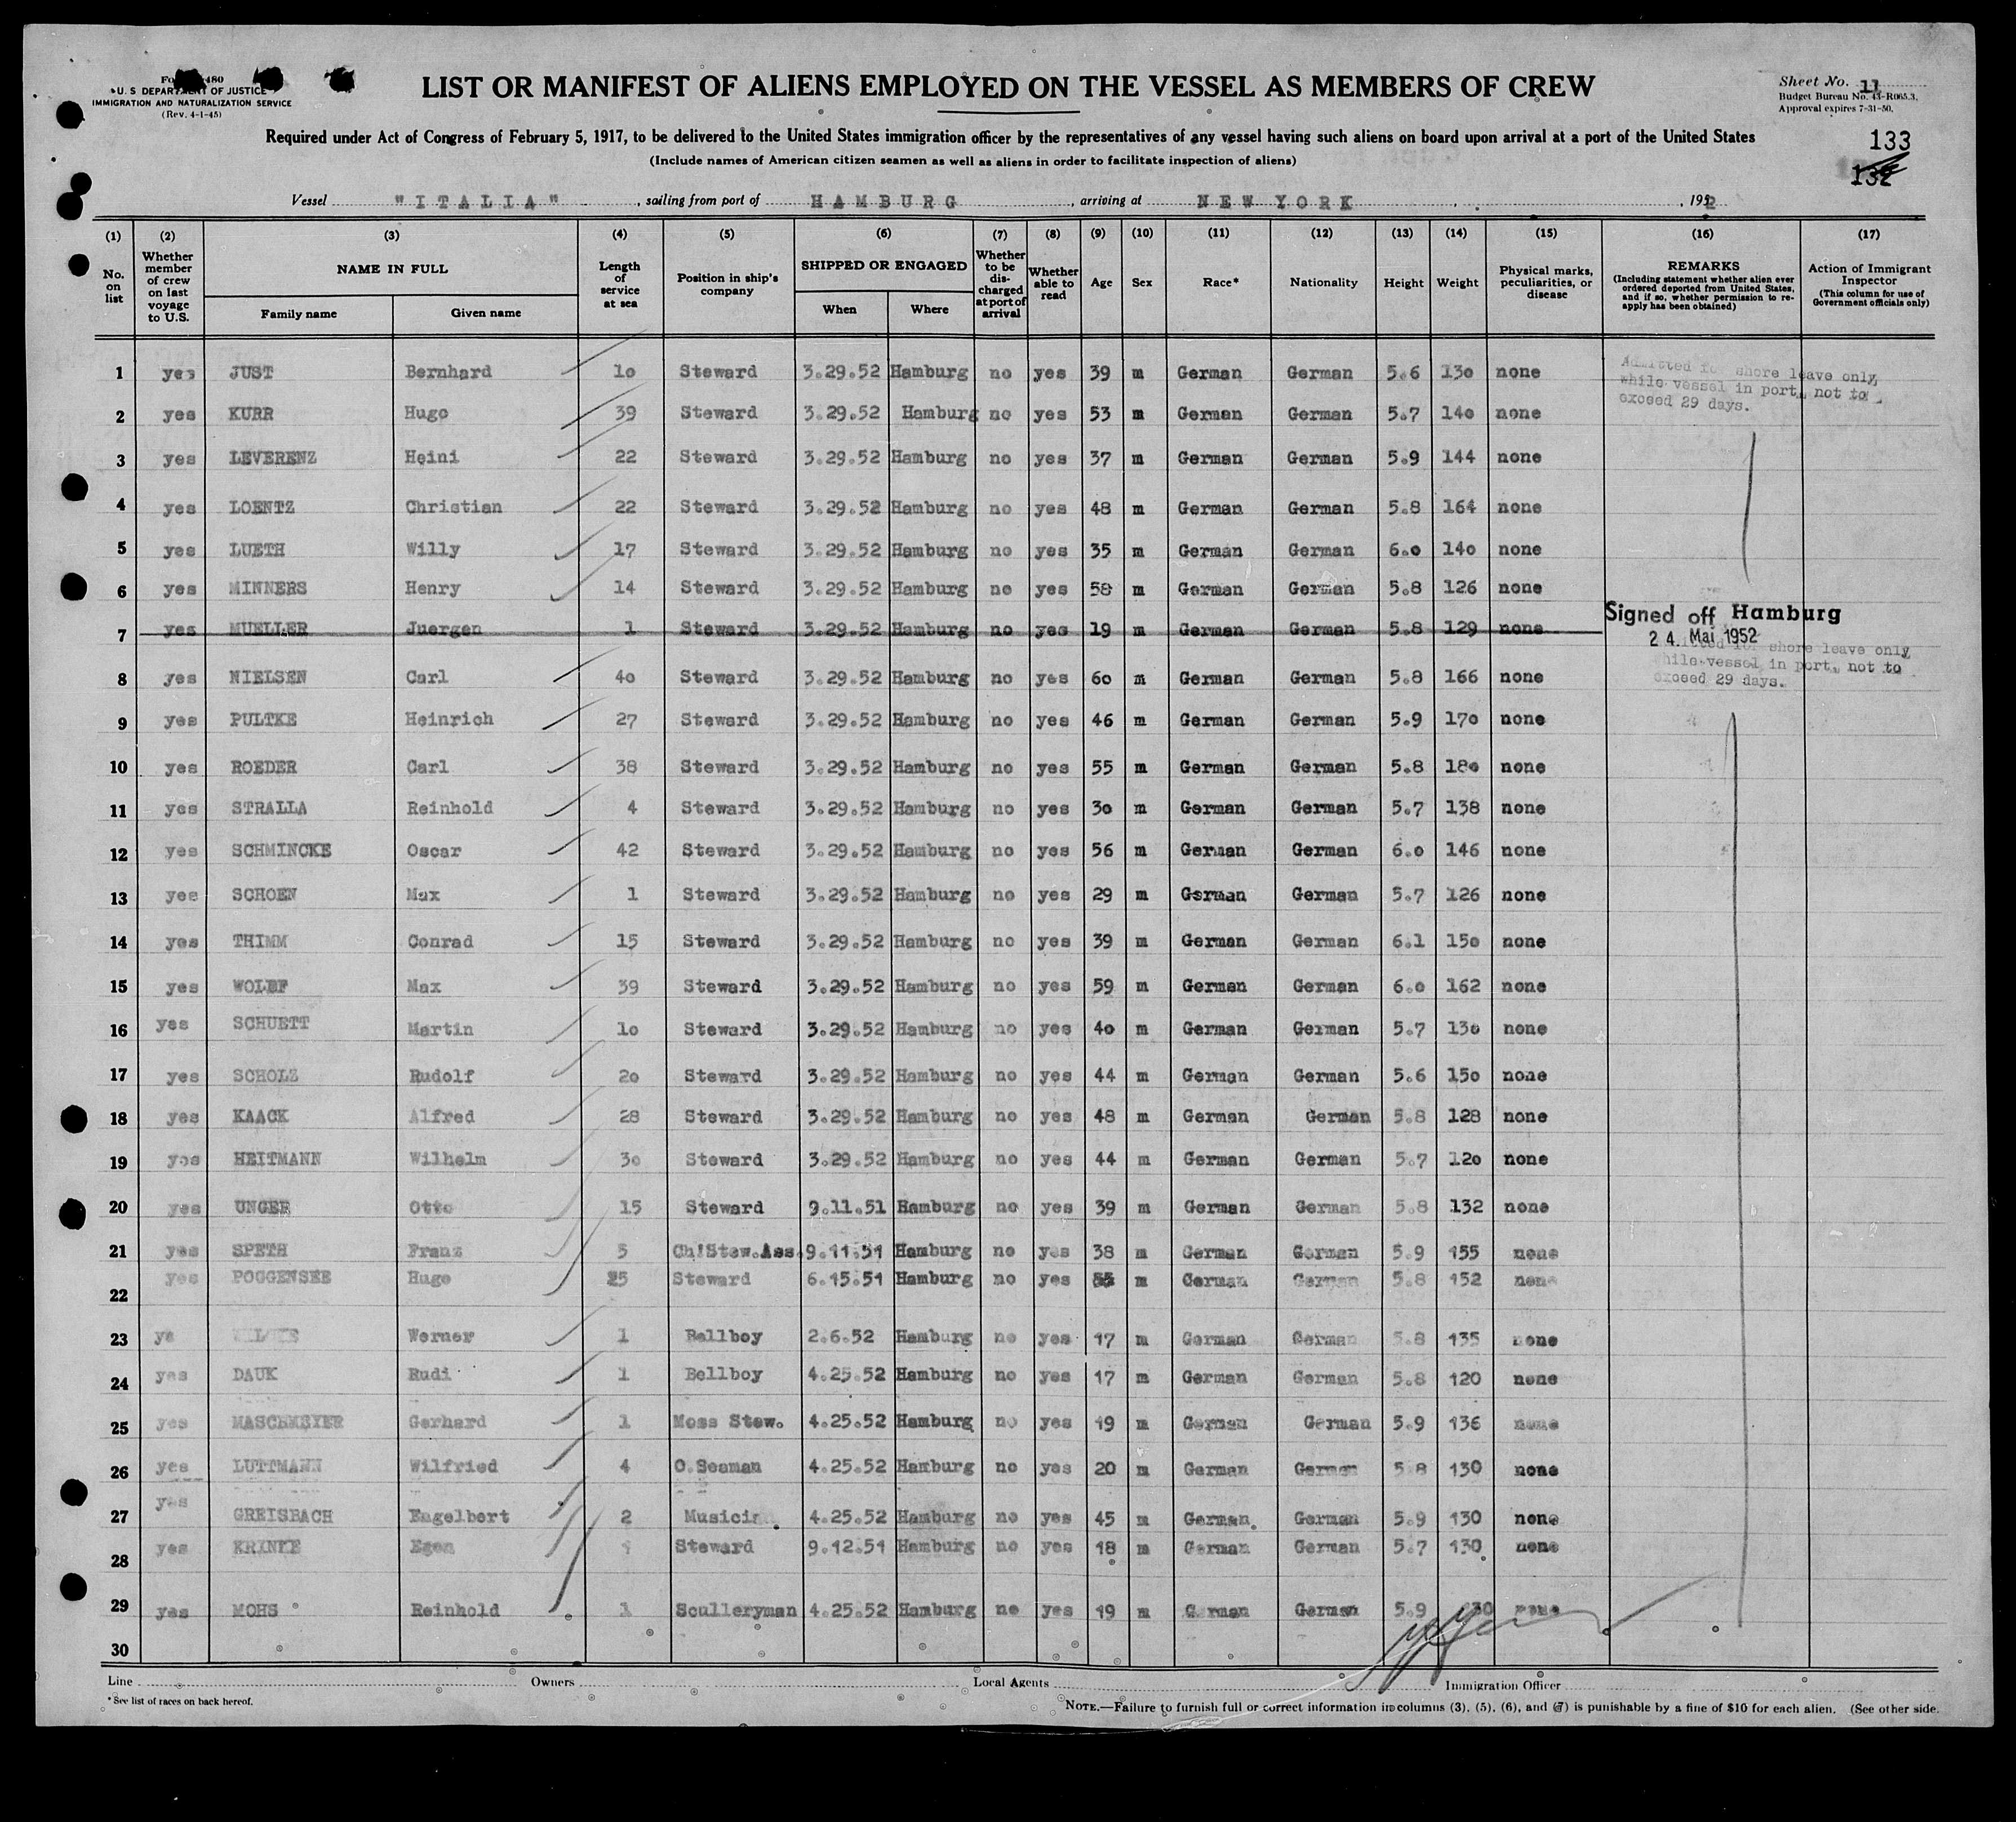 U. S DEPARTMENT OF JUSTICE
IMMIGRATION AND NATURALIZATION SERVICE
(Rev. 4-1-45)
LIST OR MANIFEST OF ALIENS EMPLOYED ON THE VESSEL AS MEMBERS OF CREW
Sheet No. 11
Budget Bureau No. 43-R065.3.
Approval expires 7-31-50.
Required under Act of Congress of February 5, 1917, to be delivered to the United States immigration officer by the representatives of any vessel having such aliens on board upon arrival at a port of the United States
(Include names of American citizen seamen as well as aliens in order to facilitate inspection of aliens)
133
132
Vessel "ITALIA", sailing from port of HAMBURG, arriving at NEW YORK, 1952
(1) No. on list
(2) Whether member of crew on last voyage to U.S.
(3) NAME IN FULL Family name Given name
(4) Length of service at sea
(5) Position in ship's company
(6) SHIPPED OR ENGAGED When Where
(7) Whether to be discharged at port of arrival
(8) Whether able to read
(9) Age
(10) Sex
(11) Race*
(12) Nationality
(13) Height
(14) Weight
(15) Physical marks, peculiarities, or disease
(16) REMARKS (Including statement whether alien ever ordered deported from United States, and if so, whether permission to reapply has been obtained)
(17) Action of Immigrant Inspector (This column for use of Government officials only)
1 yes JUST Bernhard 10 Steward 3.29.52 Hamburg no yes 39 m German German 5.6 130 none
Admitted for shore leave only while vessel in port, not to exceed 29 days.
2 yes KURR Hugo 39 Steward 3.29.52 Hamburg no yes 53 m German German 5.7 140 none
3 yes LEVERENZ Heini 22 Steward 3.29.52 Hamburg no yes 37 m German German 5.9 144 none
4 yes LOENTZ Christian 22 Steward 3.29.52 Hamburg no yes 48 m German German 5.8 164 none
5 yes LUETH Willy 17 Steward 3.29.52 Hamburg no yes 35 m German German 6.0 140 none
6 yes MINNERS Henry 14 Steward 3.29.52 Hamburg no yes 58 m German German 5.8 126 none
7 yes MUELLER Juergen 1 Steward 3.29.52 Hamburg no yes 19 m German German 5.8 129 none
Signed off Hamburg
24. Mai 1952
shore leave only
while vessel in port, not to
exceed 29 days.
8 yes NIELSEN Carl 40 Steward 3.29.52 Hamburg no yes 60 m German German 5.8 166 none
9 yes PULTKE Heinrich 27 Steward 3.29.52 Hamburg no yes 46 m German German 5.9 170 none
10 yes ROEDER Carl 38 Steward 3.29.52 Hamburg no yes 55 m German German 5.8 180 none
11 yes STRALLA Reinhold 4 Steward 3.29.52 Hamburg no yes 30 m German German 5.7 138 none
12 yes SCHMINCKE Oscar 42 Steward 3.29.52 Hamburg no yes 56 m German German 6.0 146 none
13 yes SCHOEN Max 1 Steward 3.29.52 Hamburg no yes 29 m German German 5.7 126 none
14 yes THIMM Conrad 15 Steward 3.29.52 Hamburg no yes 39 m German German 6.1 150 none
15 yes WOLFF Max 39 Steward 3.29.52 Hamburg no yes 59 m German German 6.0 162 none
16 yes SCHUETT Martin 10 Steward 3.29.52 Hamburg no yes 40 m German German 5.7 130 none
17 yes SCHOLZ Rudolf 20 Steward 3.29.52 Hamburg no yes 44 m German German 5.6 150 none
18 yes KAACK Alfred 28 Steward 3.29.52 Hamburg no yes 48 m German German 5.8 128 none
19 yes HEITMANN Wilhelm 30 Steward 3.29.52 Hamburg no yes 44 m German German 5.7 120 none
20 yes UNGER Otto 15 Steward 9.11.51 Hamburg no yes 39 m German German 5.8 132 none
21 yes SPETH Franz 5 Ch!Stew.Ass. 9.11.51 Hamburg no yes 38 m German German 5.9 155 none
22 yes POGGENSEE Hugo 25 Steward 6.15.51 Hamburg no yes 55 m German German 5.8 152 none
23 Werner 1 Bellboy 2.6.52 Hamburg no yes 17 m German German 5.8 135 none
24 yes DAUK Rudi 1 Bellboy 4.25.52 Hamburg no yes 17 m German German 5.8 120 none
25 yes MASCHMEYER Gerhard 1 Mess Stew. 4.25.52 Hamburg no yes 19 m German German 5.9 136 none
26 yes LUTTMANN Wilfried 4 O.Seaman 4.25.52 Hamburg no yes 20 m German German 5.8 130 none
27 yes GREISBACH Engelbert 2 Musician 4.25.52 Hamburg no yes 45 m German German 5.9 130 none
28 yes Egon 1 Steward 9.12.51 Hamburg no yes 18 m German German 5.7 130 none
29 yes MOHS Reinhold 1 Sculleryman 4.25.52 Hamburg no yes 19 m German German 5.9 130 none
30
Line Owners Local Agents Immigration Officer
* See list of races on back hereof.
NOTE.—Failure to furnish full or correct information in columns (3), (5), (6), and (7) is punishable by a fine of $10 for each alien. (See other side.